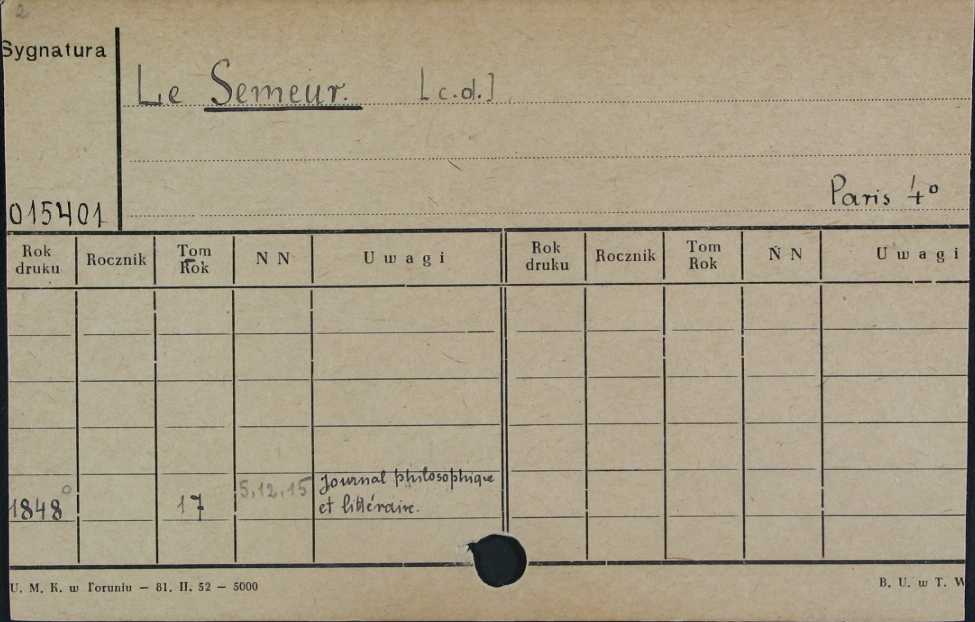 2
Sygnatura
Le Semeur. [c.d.]
Paris 4°
015401
Rok druku Rocznik Tom Rok N N Uwagi Rok druku Rocznik Tom Rok N N Uwagi
1848° 17 5,12,15 Journal philosophique
et littéraire.
U. M. K. w Toruniu — 81. II. 52 — 5000 B. U. w T. W